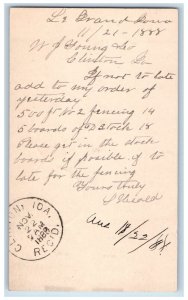 Le Grand Iowa
11/21 - 1888
W J Young & Co
Clinton Ia
If not to late
add to my order of
yesterday
500 ft No 2 fencing 14
6 boards of D Stock 18
Please get in the stock
boards if possible if to
late for the fencing
Yours truly
Ans 11/22/88
CLINTON, IDA.
NOV
1888
REC'D.